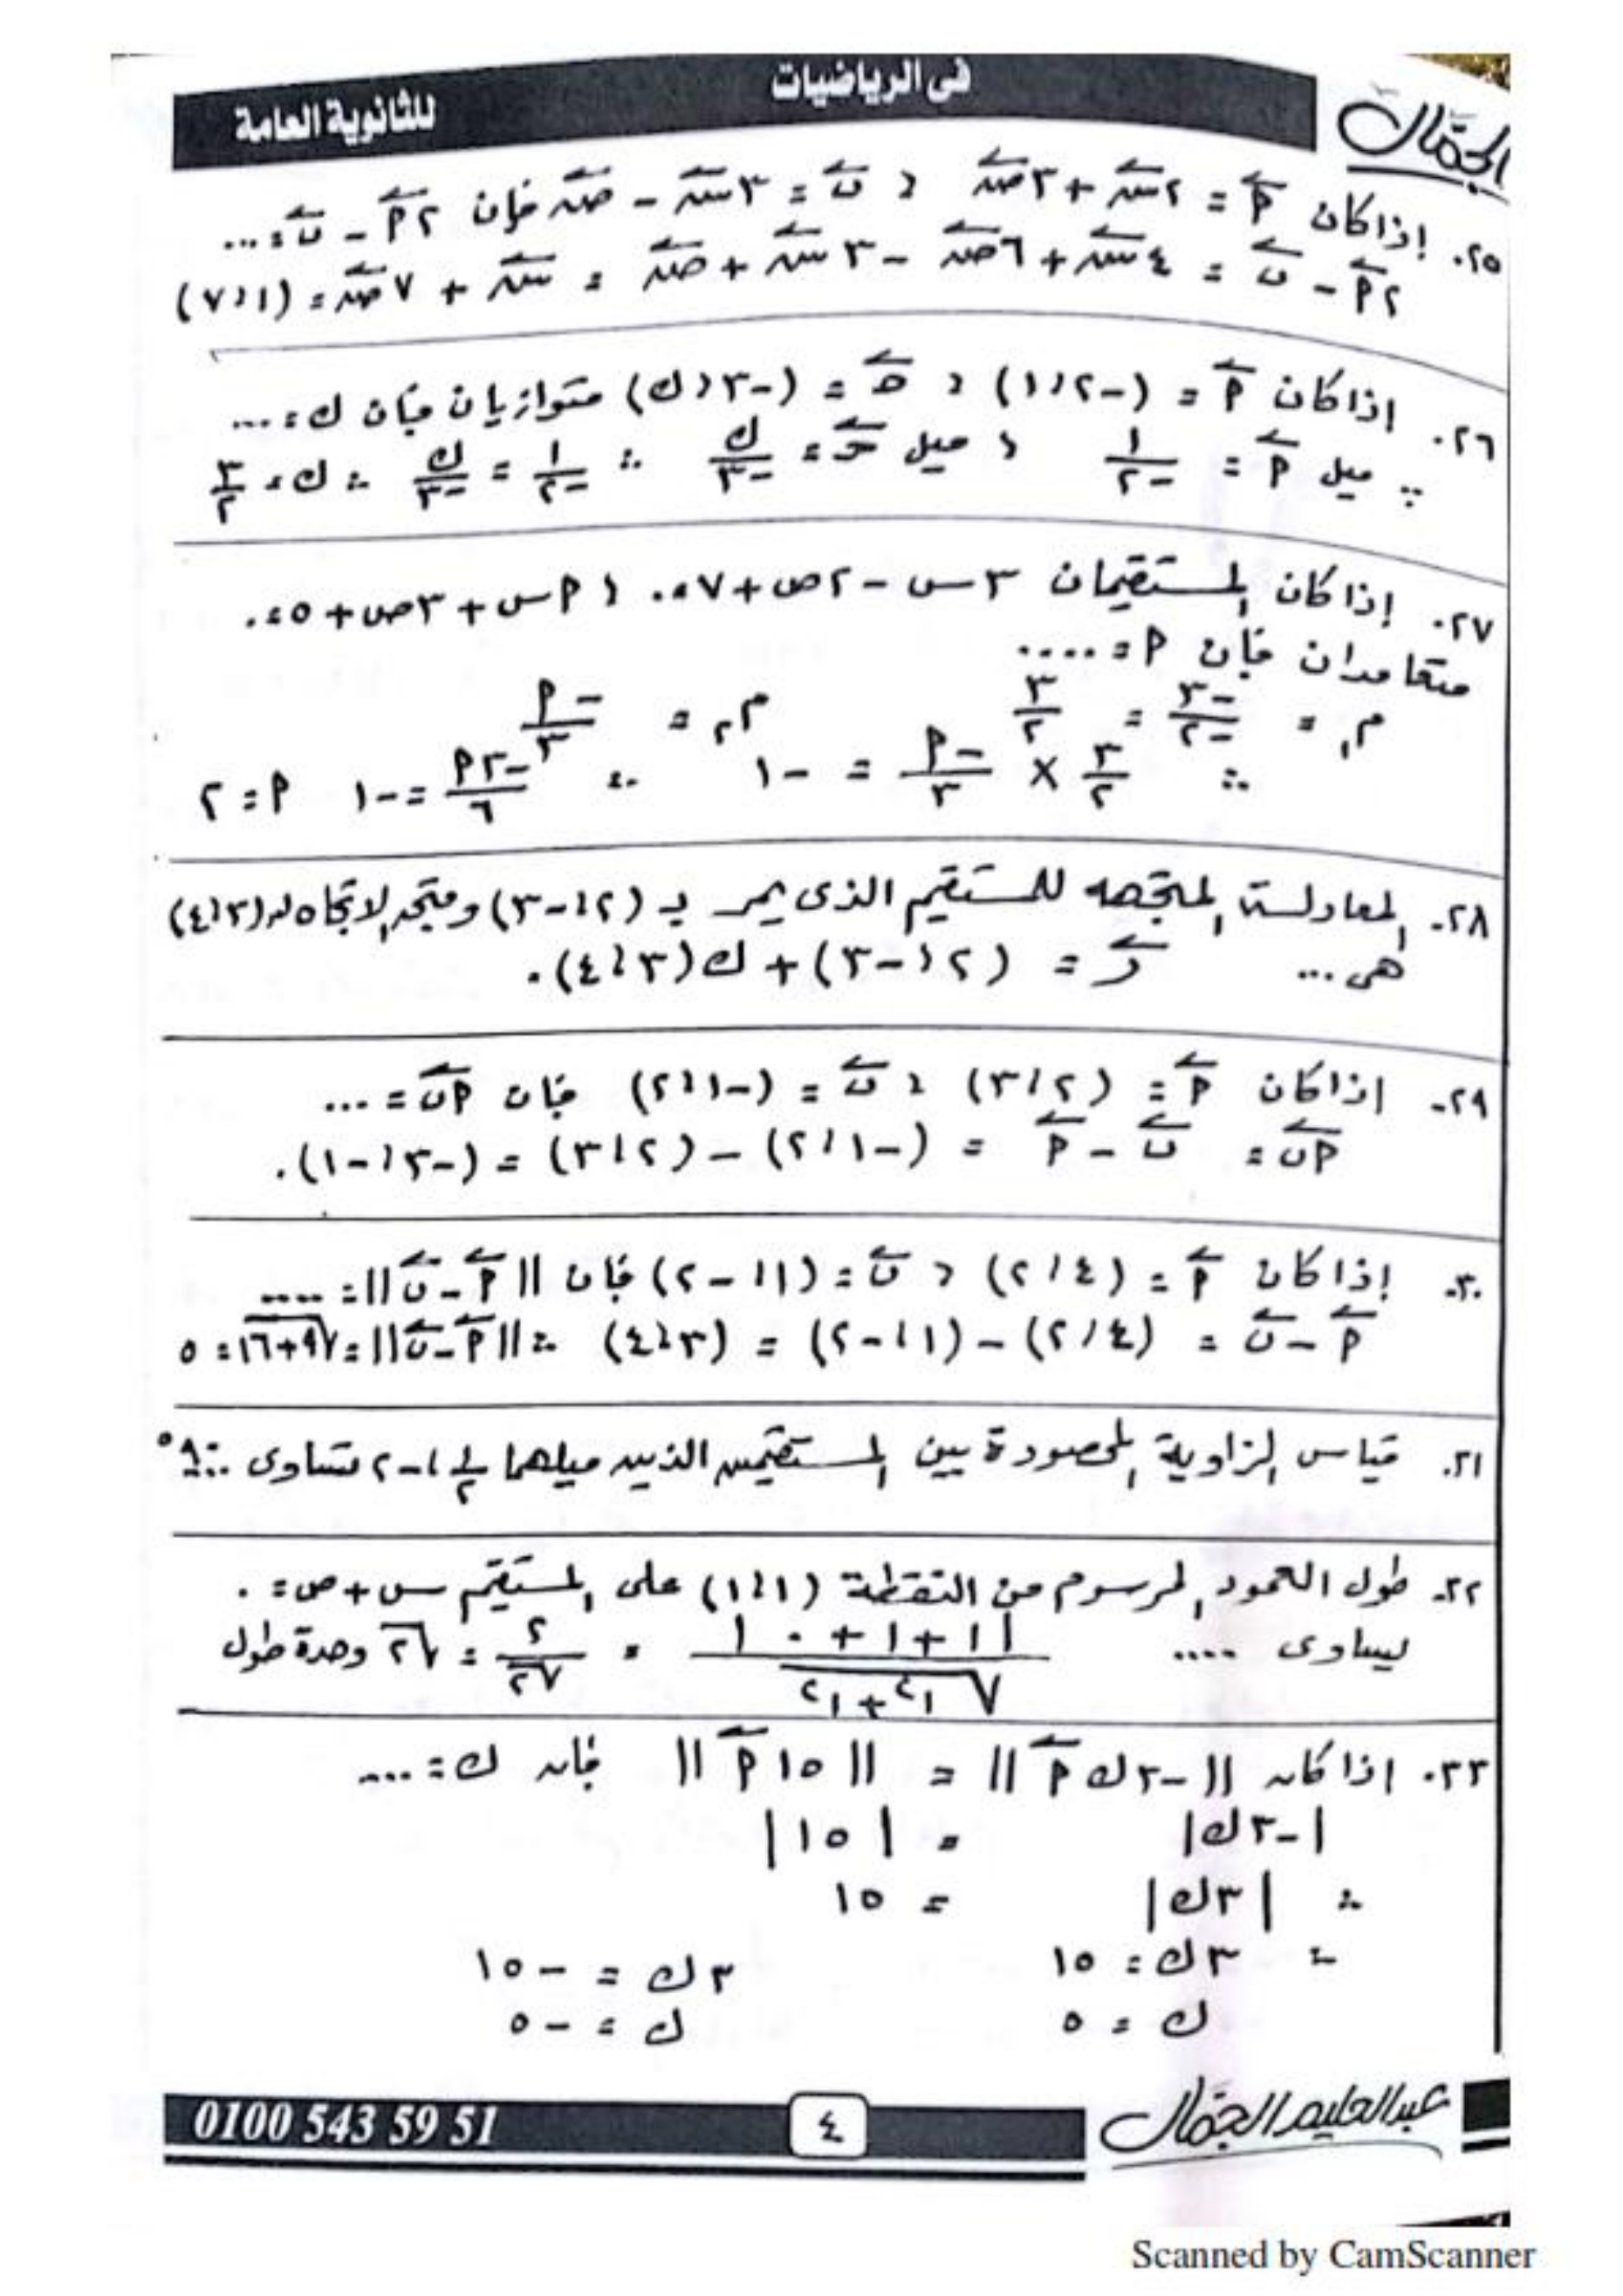 الجمّال
فى الرياضيات
للثانوية العامة
٢٥. إذا كان أ = ٢س + ٣ص ، ب = ٣س - ص فإن ٢أ - ب = ...
٢أ - ب = ٤س + ٦ص - ٣س + ص = س + ٧ص = (١، ٧)
٢٦. إذا كان أ = (-٢، ١) ، حـ = (-٣، ك) متوازيان فإن ك = ...
∵ ميل أ = ١/-٢ ، ميل حـ = ك/-٣ ∴ ١/-٢ = ك/-٣ ∴ ك = ٣/٢
٢٧. إذا كان المستقيمان ٣س - ٢ص + ٧ = ٠ ، أس + ٣ص + ٥ = ٠
متعامدان فإن أ = ....
م١ = -٣/-٢ = ٣/٢ م٢ = -أ/٣
∴ ٣/٢ × -أ/٣ = -١ ∴ -٣أ/٦ = -١ أ = ٢
٢٨. المعادلة المتجهه للمستقيم الذى يمر بـ (٢، -٣) ومتجه الاتجاه له (٣، ٤)
هى ... ر = (٢، -٣) + ك(٣، ٤).
٢٩. اذا كان أ = (٢، ٣) ، ب = (-١، ٢) فإن أب = ...
أب = ب - أ = (-١، ٢) - (٢، ٣) = (-٣، -١).
٣٠. إذا كان أ = (٤، ٢) ، ب = (١، -٢) فإن ||أ - ب|| = ....
أ - ب = (٤، ٢) - (١، -٢) = (٣، ٤) ∴ ||أ - ب|| = √٩+١٦ = ٥
٣١. قياس الزاوية المحصورة بين المستقيمين الذين ميلاهما ١/٢ ، -٢ تساوى ٩٠°
٣٢. طول العمود المرسوم من النقطة (١، ١) على المستقيم س + ص = ٠
يساوى .... |١ + ١ + ٠| / √١² + ١² = ٢/√٢ = √٢ وحدة طول
٣٣. اذا كان ||-٣ك أ|| = ||١٥ أ|| فإن ك = ...
|-٣ك| = |١٥|
∴ |٣ك| = ١٥
∴ ٣ك = ١٥ ٣ك = -١٥
ك = ٥ ك = -٥
عبدالحليم الجمّال
٤
0100 543 59 51
Scanned by CamScanner